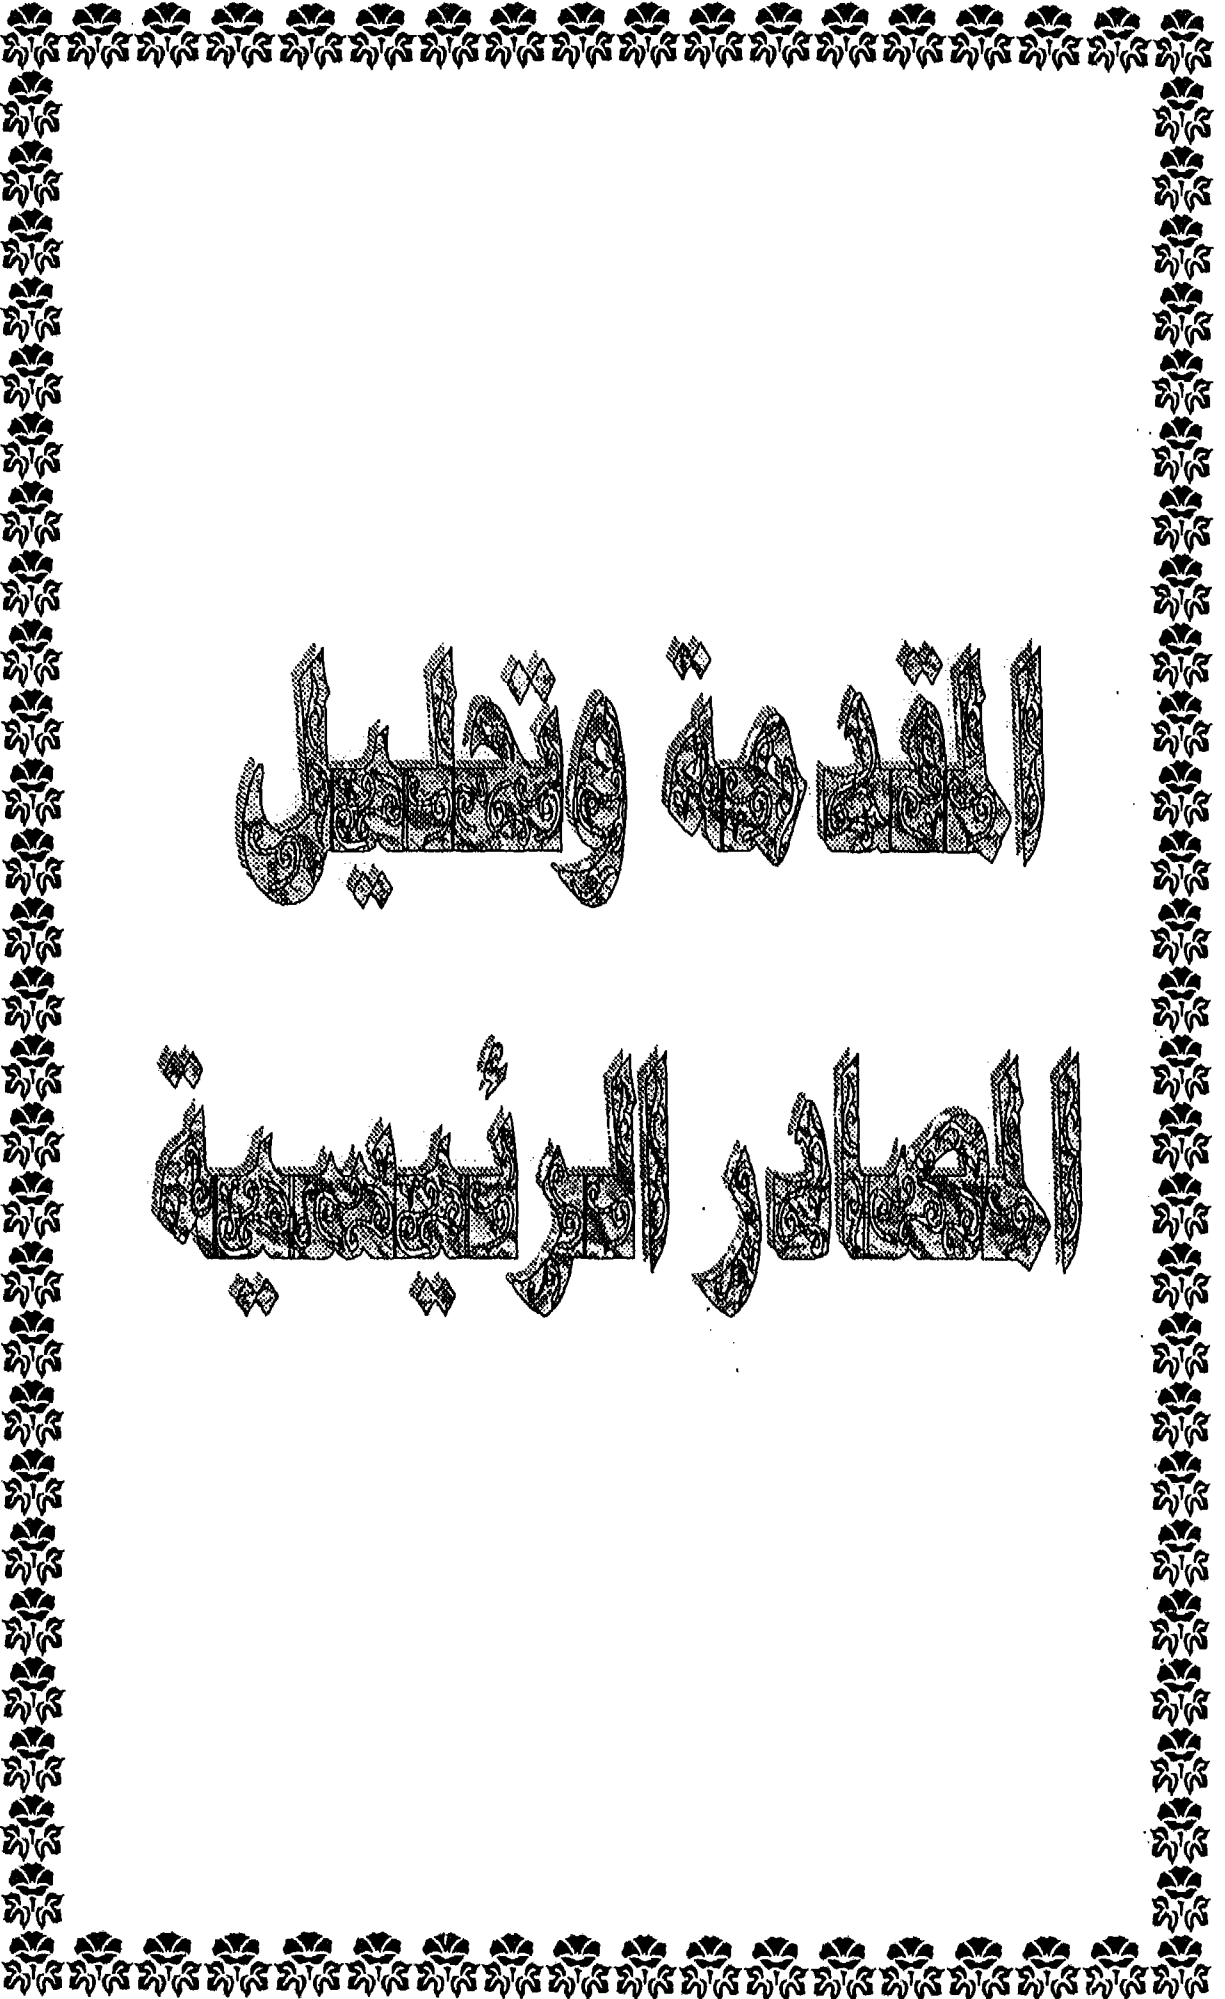 المقدمة وتحليل
المصادر الرئيسية